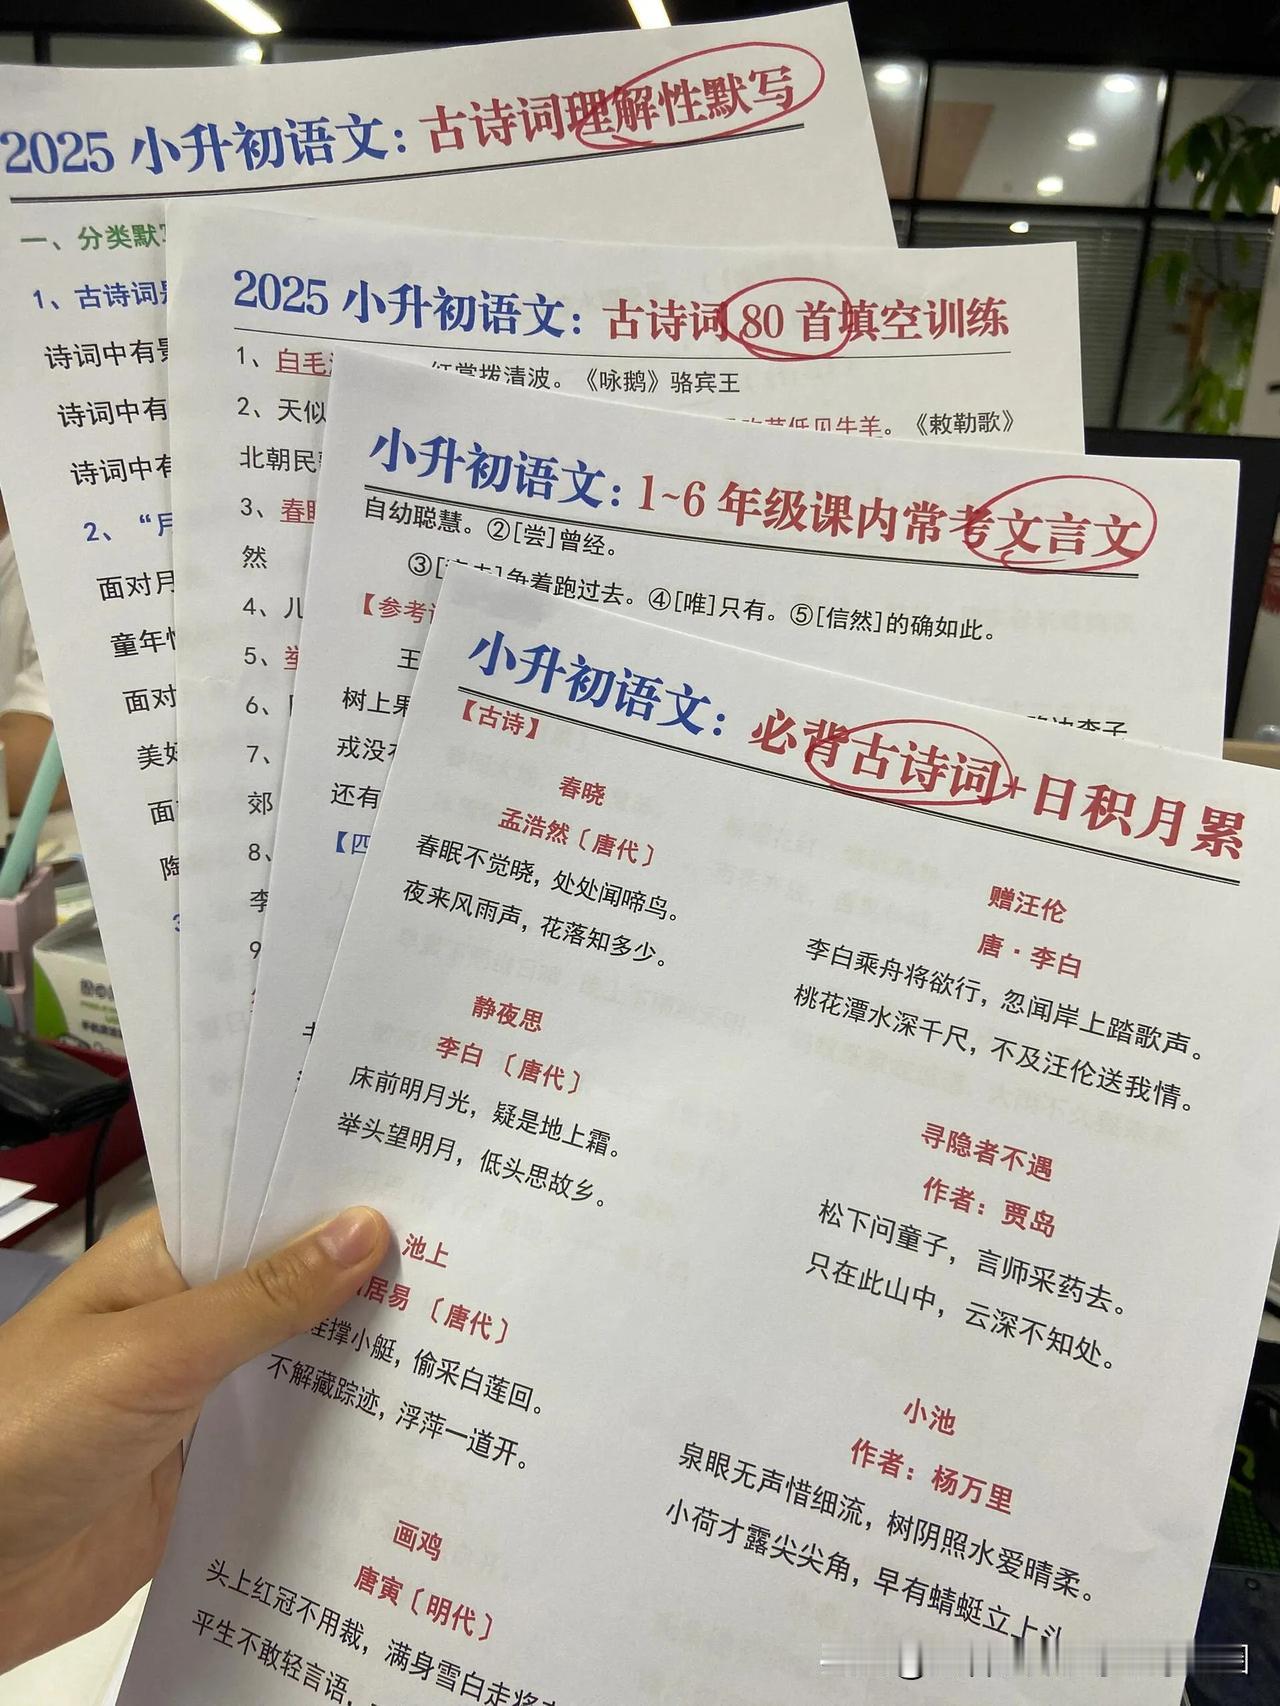 2025 小升初语文：古诗词理解性默写
一、分类默
1、古诗词
诗词中有
诗词中有
诗词中有
2、“月
面对月
童年
面对
美好
面
陶
3
2025 小升初语文：古诗词 80 首填空训练
1、白毛 红掌拨清波。《咏鹅》骆宾王
2、天似 低见牛羊。《敕勒歌》
北朝民
3、春眠
然
4、儿
5、举
6、
7、
郊
8、
李
9
小升初语文：1~6 年级课内常考文言文
自幼聪慧。②[尝]曾经。
③ 争着跑过去。④[唯]只有。⑤[信然]的确如此。
【参考
王 李子
树上果
戎没有
还有
【四
小升初语文：必背古诗词+日积月累
【古诗】
春晓
孟浩然〔唐代〕
春眠不觉晓，处处闻啼鸟。
夜来风雨声，花落知多少。
静夜思
李白 〔唐代〕
床前明月光，疑是地上霜。
举头望明月，低头思故乡。
池上
居易 〔唐代〕
娃撑小艇，偷采白莲回。
不解藏踪迹，浮萍一道开。
画鸡
唐寅〔明代〕
头上红冠不用裁，满身雪白走将
平生不敢轻言语，
赠汪伦
唐·李白
李白乘舟将欲行，忽闻岸上踏歌声。
桃花潭水深千尺，不及汪伦送我情。
寻隐者不遇
作者：贾岛
松下问童子，言师采药去。
只在此山中，云深不知处。
小池
作者：杨万里
泉眼无声惜细流，树阴照水爱晴柔。
小荷才露尖尖角，早有蜻蜓立上头